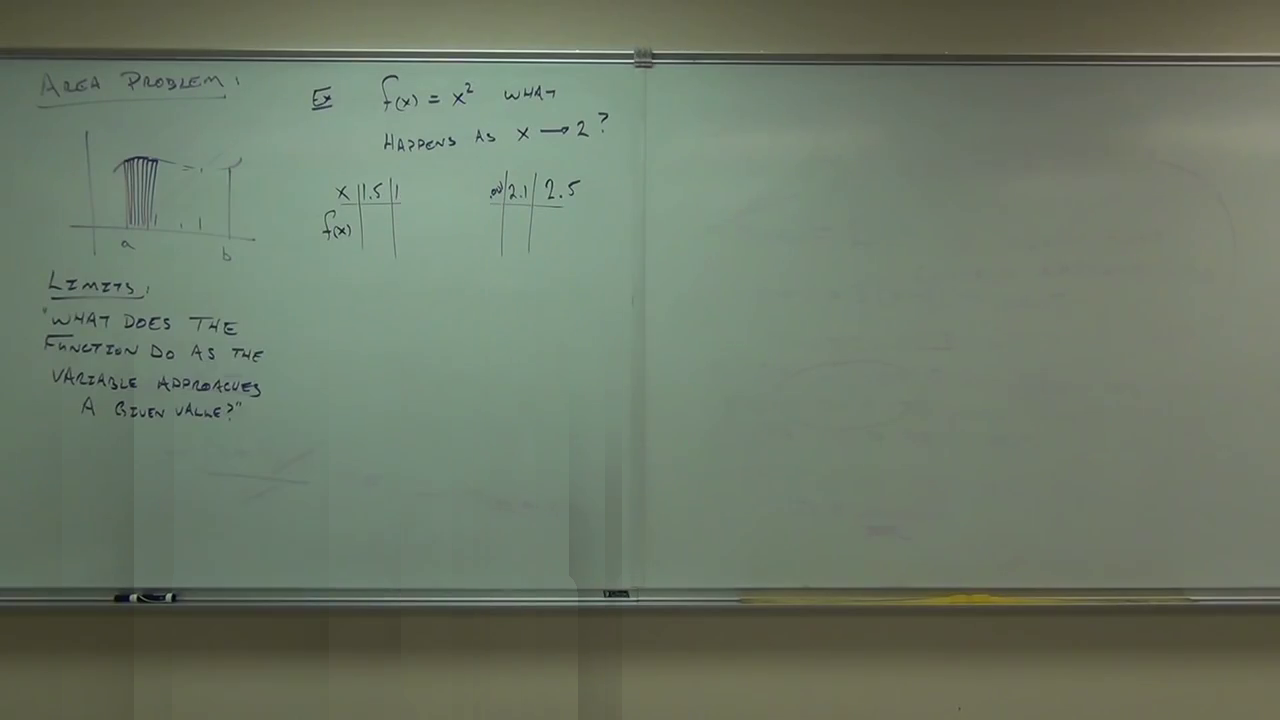 AREA PROBLEM:
a
b
LIMITS:
"WHAT DOES THE
FUNCTION DO AS THE
VARIABLE APPROACHES
A GIVEN VALUE?"
Ex f(x) = x² WHAT
HAPPENS AS x → 2?
x 1.5 1 2.1 2.5
f(x)